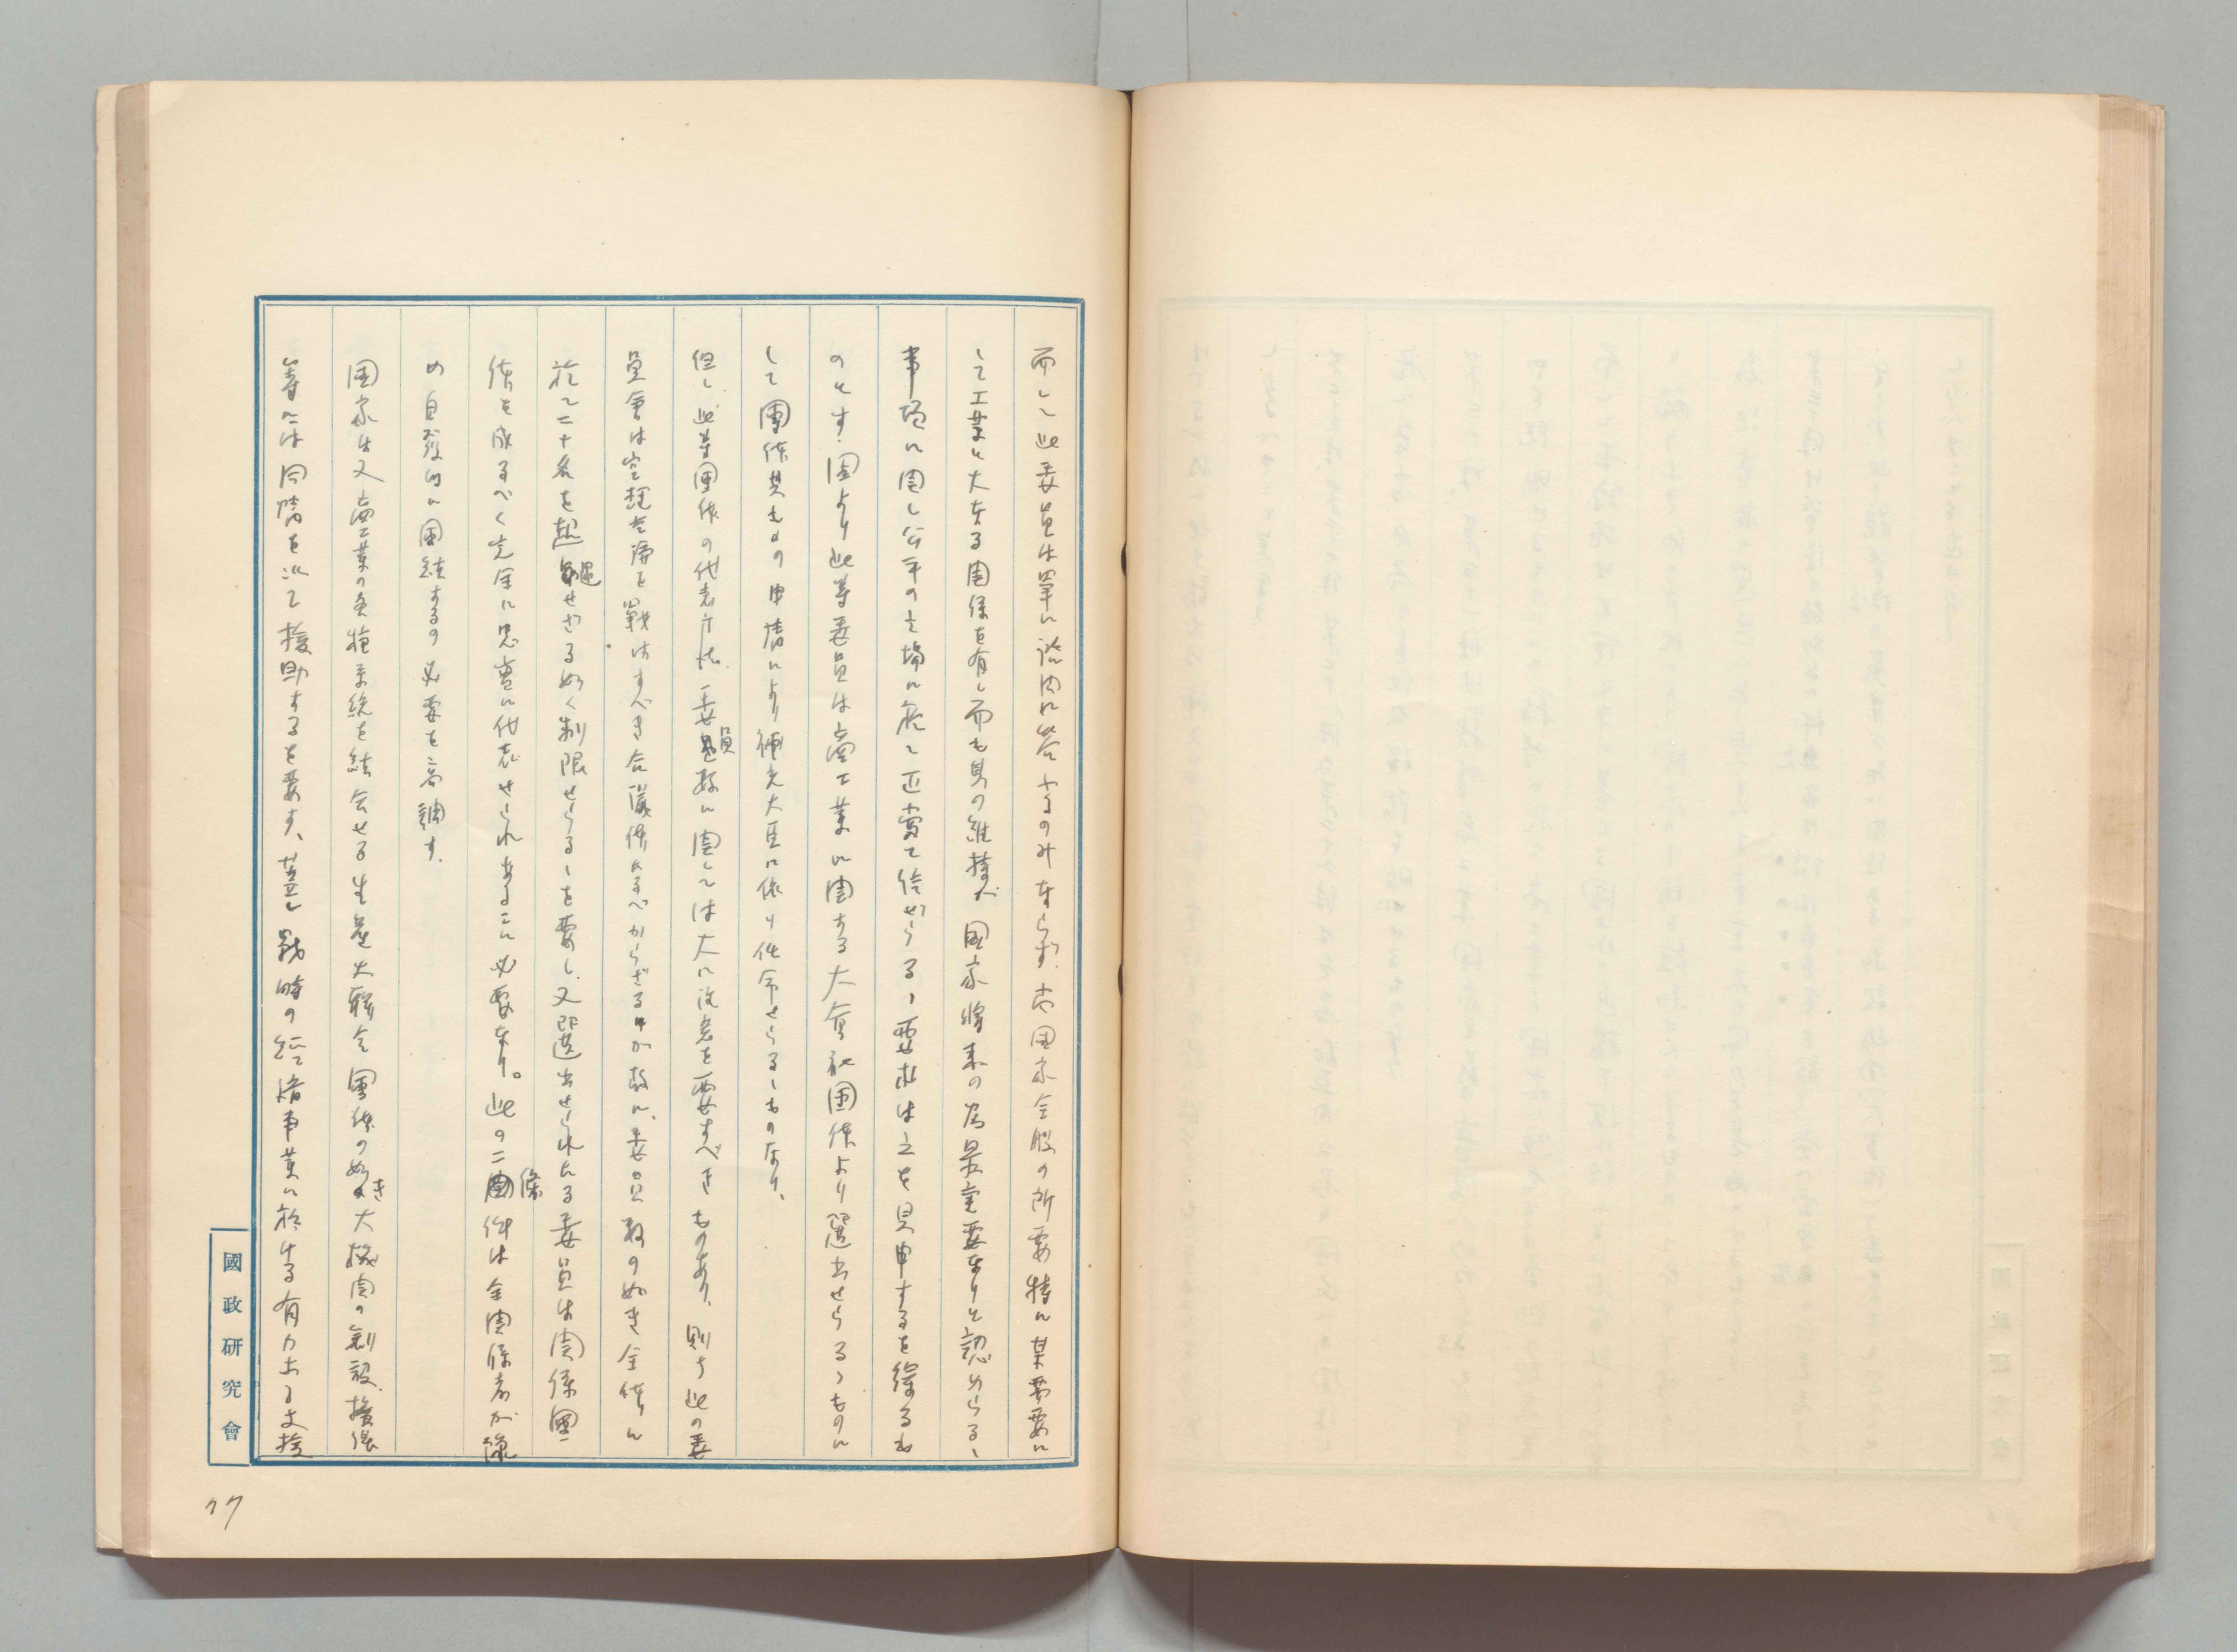 而して此委員は単に諮問に答ふるのみならず、尚国家全般の所要特に某要に
して工業に大なる関係を有し而も其の維持が国家将来の為最重要なりと認めらるゝ
事項に関し公平の立場に於て正当で給せらるゝ要求は之を具申するを得るも
のとす。固より此等委員は商工業に関する大会社団体より選出せらるゝものに
して団体其ものの申請により補充大臣に依り任命せらるゝものなり、
但し、此等団体の代表方法、委員数に関しては大に改善を要すべきものあり、則ち此の委
員會は空理空論を戦はすべき合議体たるべからざるが故に、委員数の如き全体に
於て二十名を超過せざる如く制限せらるゝを要し、又選出せられたる委員は関係團
体を成るべく完全に忠実に代表せられあること必要なり。此の二條件は全関係者が豫
め自発的に團結するの必要を高調す。
国家は又商工業の各種系統を結合せる生産大聯合團体の如き大機関の創設、援護
等には同情を以て援助するを要す、蓋し戦時の経済事業に於ける有力なる支援
國政研究會
77